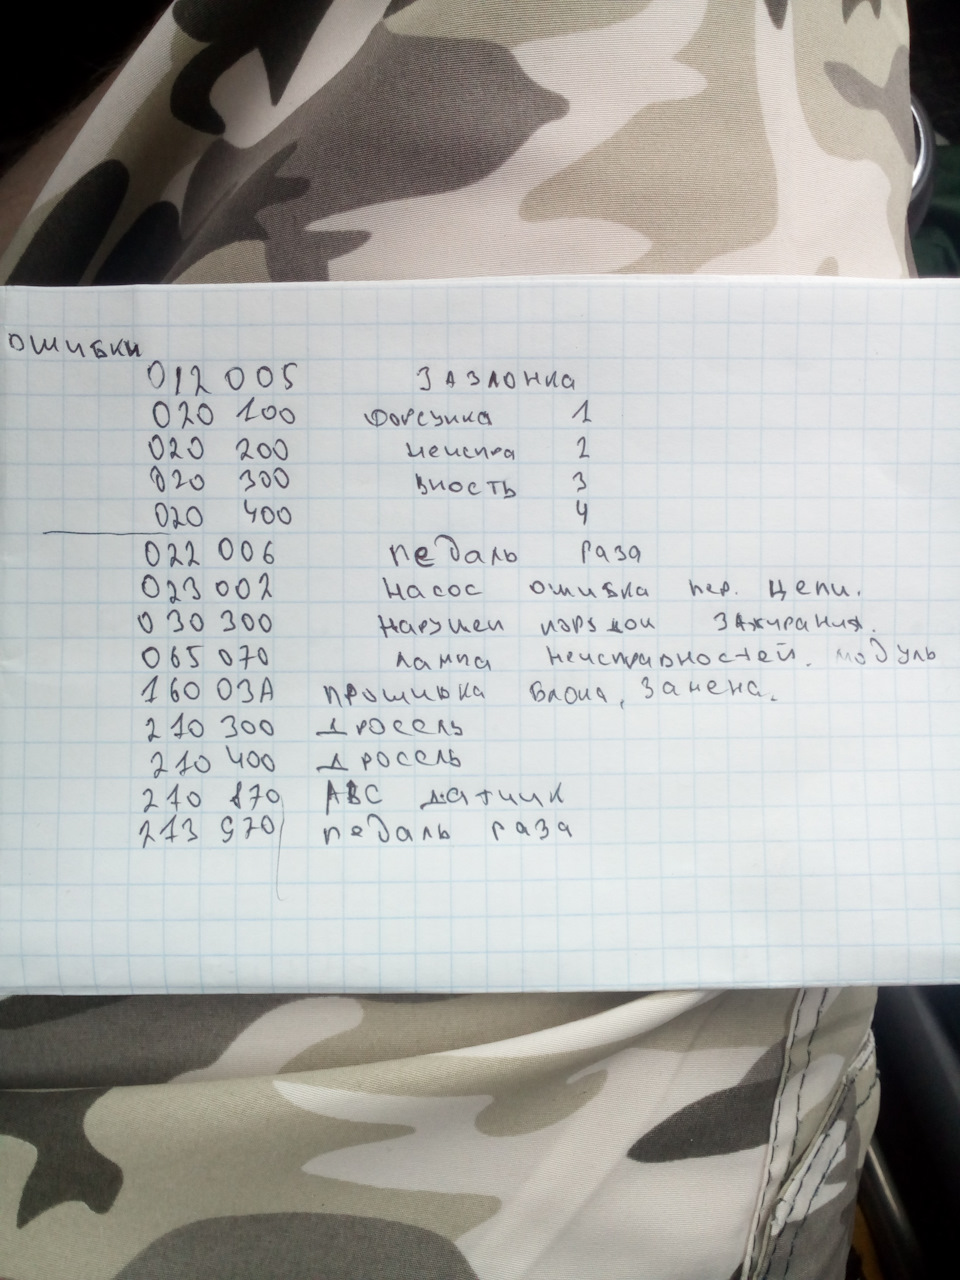 ошибки
012 005 Зазлонка
020 100 Форсунка 1
020 200 неиспра 2
020 300 вность 3
020 400 4
022 006 педаль газа
023 002 Насос ошибка пер. цепи.
030 300 нарушен зажирания.
065 070 лампа неисправностей. модуль
160 03А прошивка блока, Замена.
210 300 Дросель
210 400 Дросель
210 170 АВС датчик
213 570 педаль газа